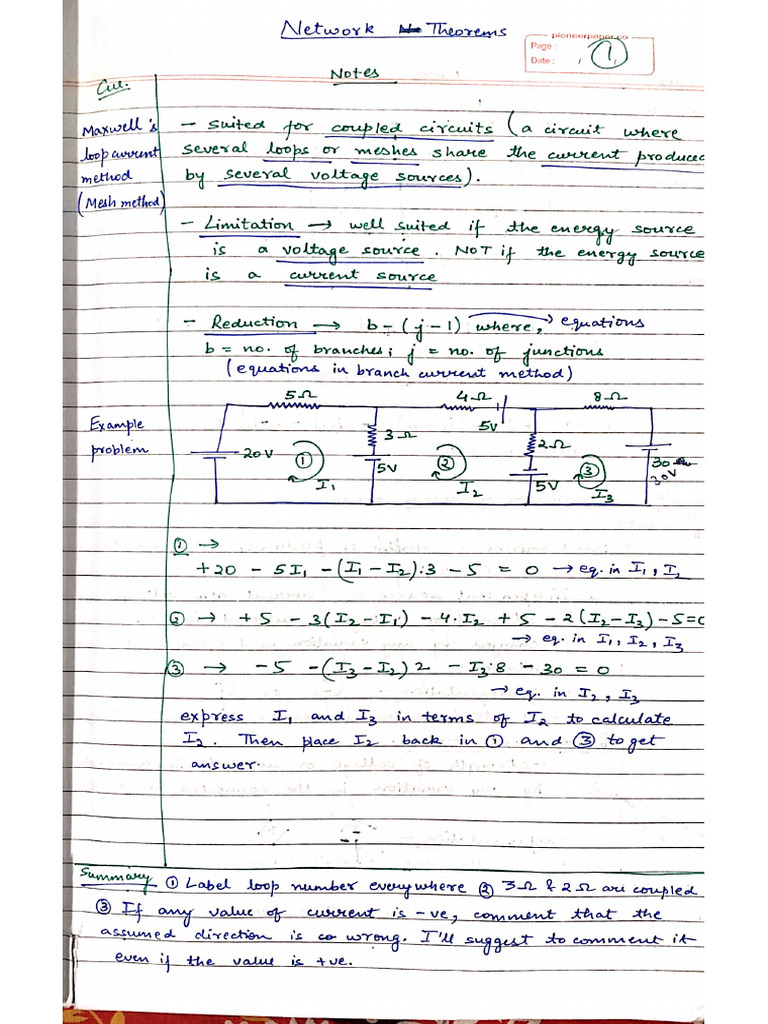 Network Theorems
pioneerpaper.co
Page: 1
Date:
Cue.
Notes
Maxwell's
loop current
method
(Mesh method)
- Suited for coupled circuits (a circuit where
several loops or meshes share the current produced
by several voltage sources).
- Limitation → well suited if the energy source
is a voltage source. NOT if the energy source
is a current source
- Reduction → b - (j - 1) where, equations
b = no. of branches; j = no. of junctions
(equations in branch current method)
Example
problem
5Ω 4Ω 8Ω
5V
3Ω 2Ω
20V 1 5V 2 3 30
30V
I₁ I₂ 5V I₃
① →
+20 - 5I₁ - (I₁ - I₂).3 - 5 = 0 → eq. in I₁, I₂
② → +5 - 3(I₂ - I₁) - 4.I₂ + 5 - 2(I₂ - I₃) - 5 = 0
→ eq. in I₁, I₂, I₃
③ → -5 - (I₃ - I₂)2 - I₃.8 - 30 = 0
→ eq. in I₂, I₃
express I₁ and I₃ in terms of I₂ to calculate
I₂. Then place I₂ back in ① and ③ to get
answer.
Summary ① Label loop number everywhere ② 3Ω & 2Ω are coupled
③ If any value of current is -ve, comment that the
assumed direction is wrong. I'll suggest to comment it
even if the value is +ve.